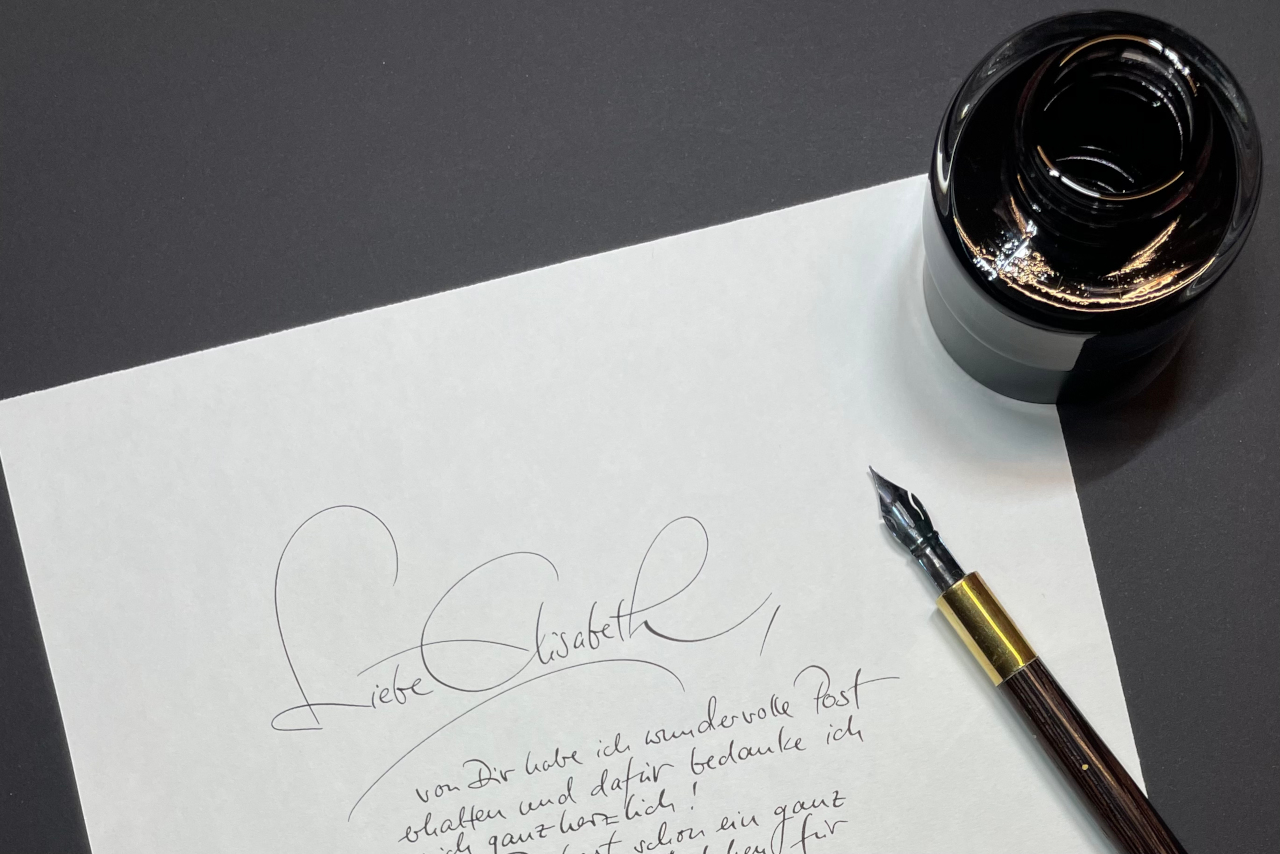 Liebe Elisabeth,
von Dir habe ich wundervolle Post
erhalten und dafür bedanke ich
ganz herzlich!
schon ein ganz
für